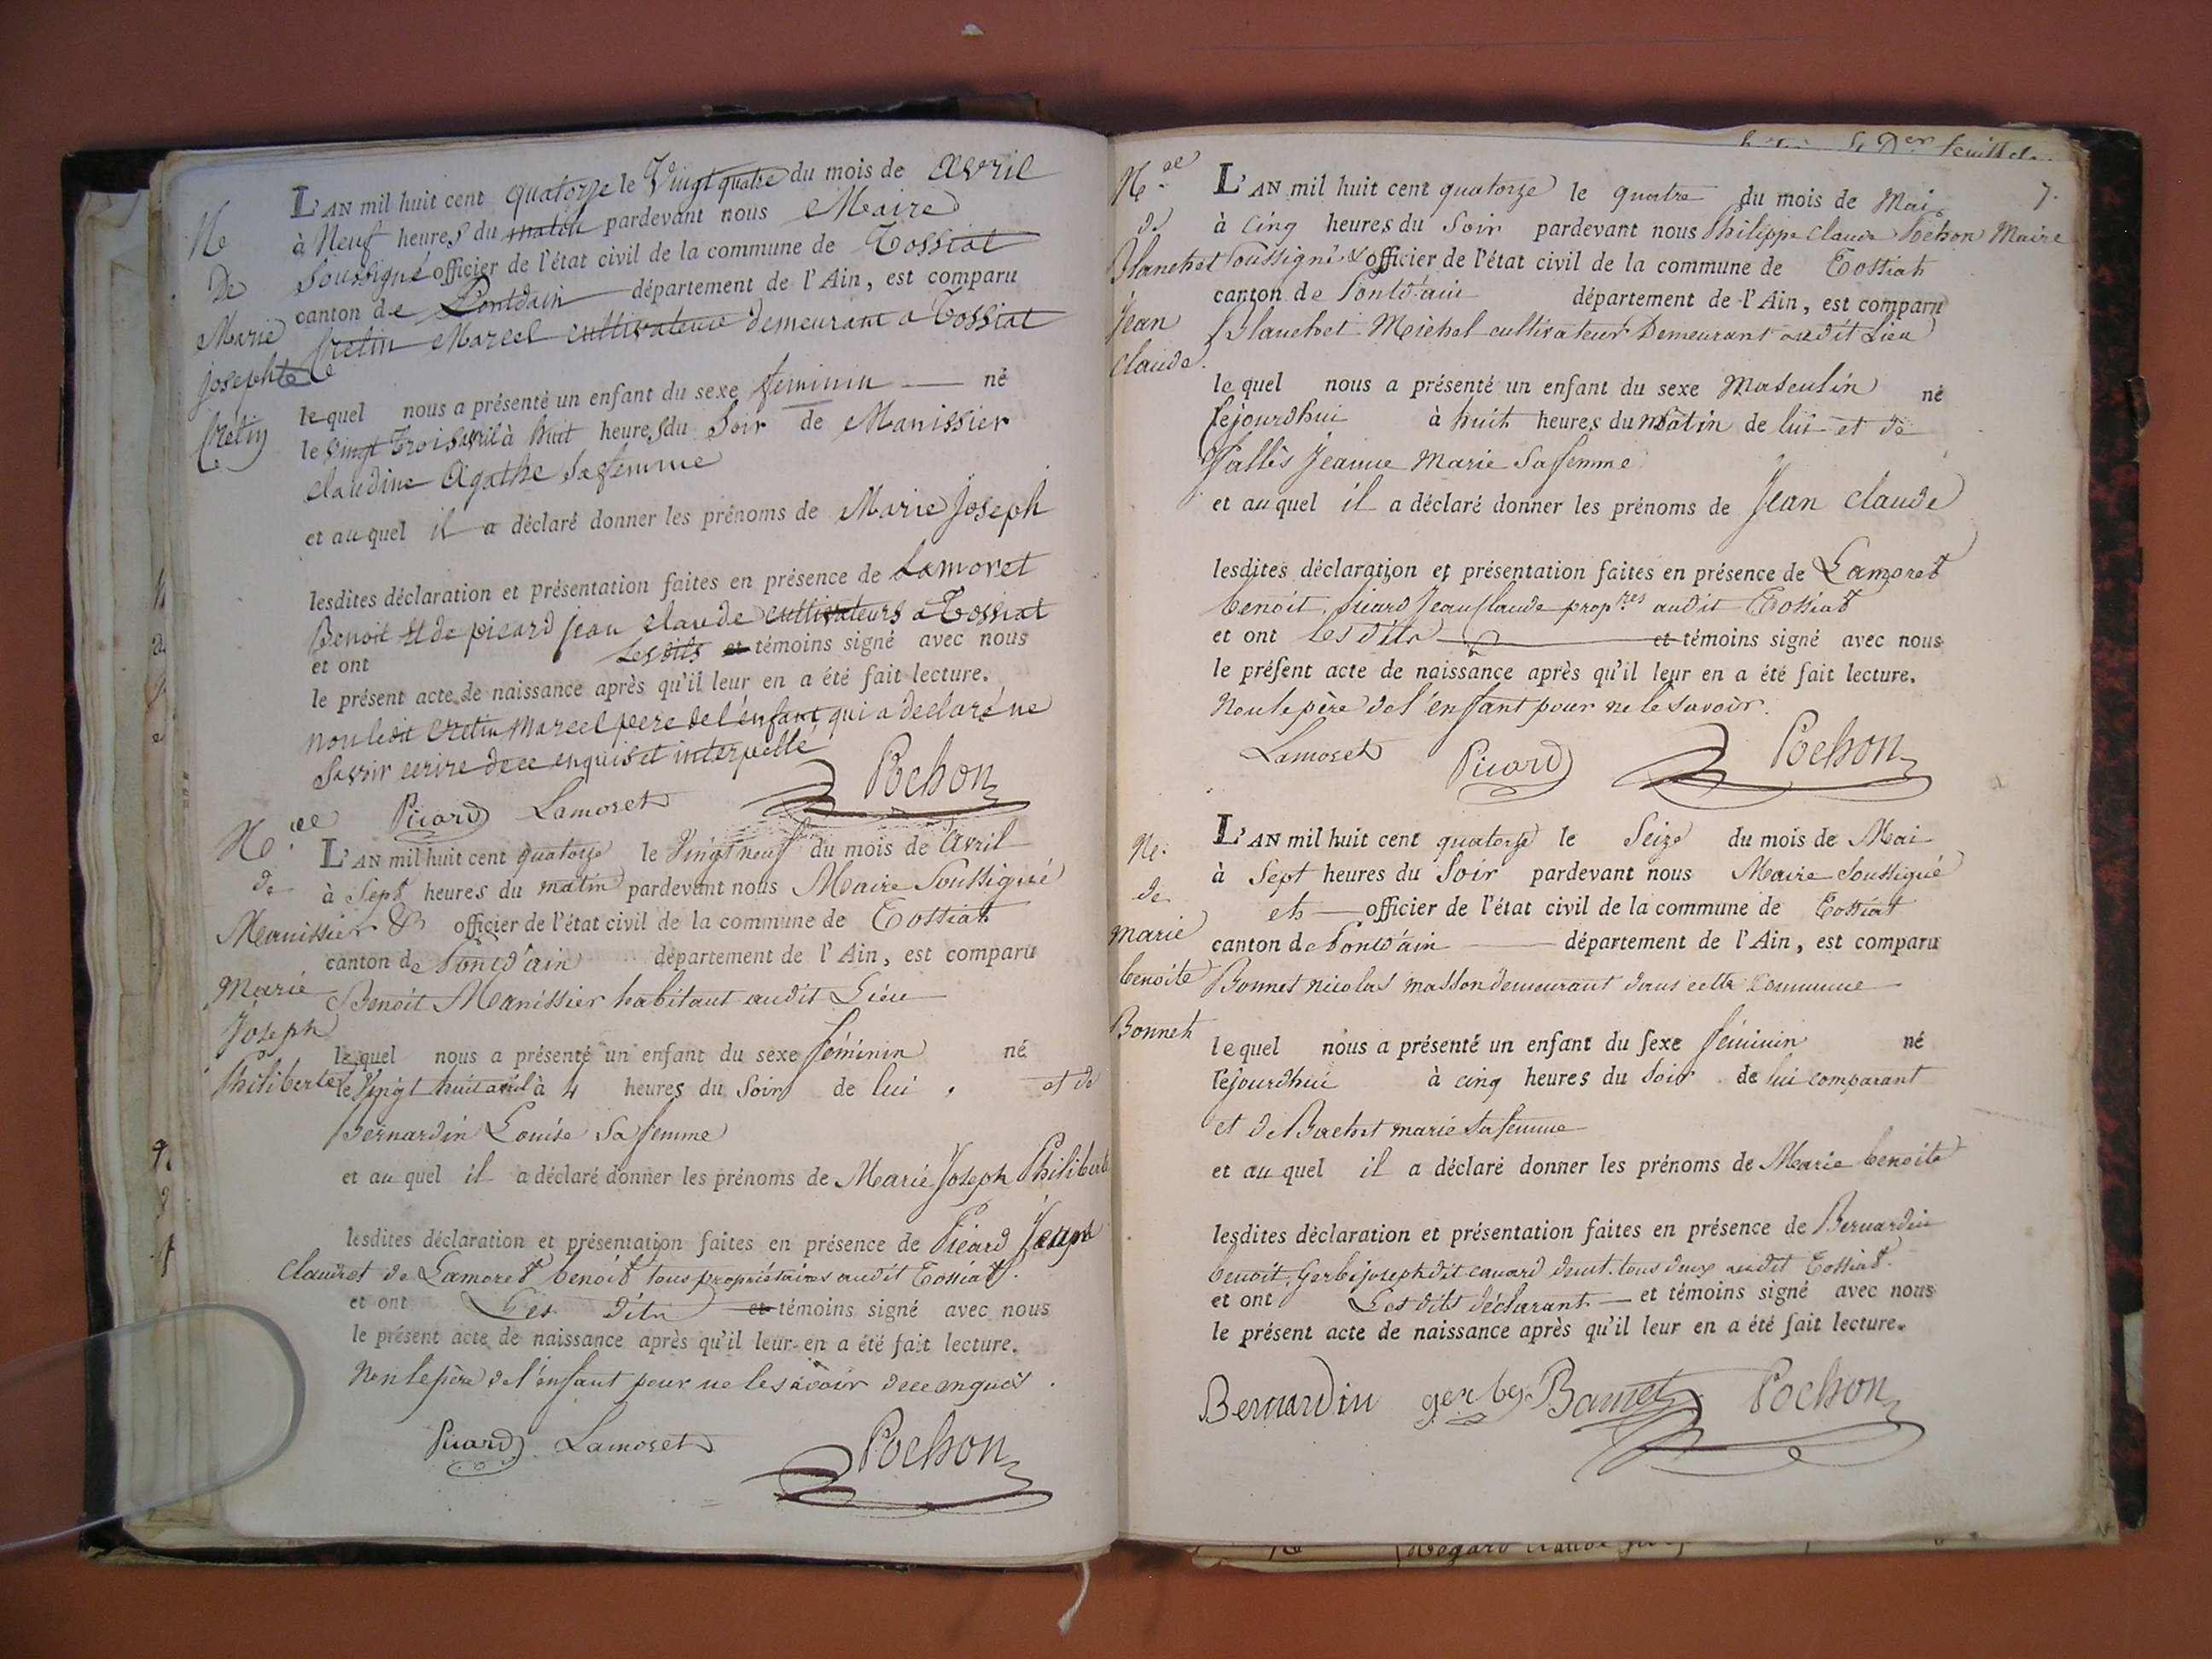 Ne
De
Marie
Josephte
Cretin
L'AN mil huit cent quatorze le Vingt quatre du mois de avril
à Neuf heures du matin pardevant nous Maire
Soussigné officier de l'état civil de la commune de Tossiat
canton de Pontdain département de l'Ain, est comparu
Cretin Marcel cultivateur demeurant a Tossiat
lequel nous a présenté un enfant du sexe feminin né
le vingt trois avril à huit heures du Soir de Manissier
claudine Agathe Sa femme
et auquel il a déclaré donner les prénoms de Marie Joseph
lesdites déclaration et présentation faites en présence de Lamoret
Benoit et de picard jean claude cultivateurs a Tossiat
et ont Lesdits et témoins signé avec nous
le présent acte de naissance après qu'il leur en a été fait lecture.
non ledit Cretin Marcel pere de l'enfant qui a declaré ne
Savoir ecrire de ce enquis et interpellé
Picard Lamoret Pochon
N.ce
de
Manissier
Marie
Joseph
Philiberte
L'AN mil huit cent quatorze le Vingt neuf du mois de Avril
à Sept heures du matin pardevant nous Maire Soussigné
& officier de l'état civil de la commune de Tossiat
canton de Pontd'ain département de l'Ain, est comparu
Benoit Manissier habitant audit Lieu
lequel nous a présenté un enfant du sexe féminin né
le Vingt huit avril à 4 heures du Soir de lui et de
Bernardin Louise Sa femme
et au quel il a déclaré donner les prénoms de Marie Joseph Philiberte
lesdites déclaration et présentation faites en présence de Picard Jean
Claude et de Lamoret benoît tous propriétaires audit Tossiat.
et ont Les dits et témoins signé avec nous
le présent acte de naissance après qu'il leur en a été fait lecture.
Non le père de l'enfant pour ne le savoir de ce enquis.
Picard Lamoret Pochon
7.
N.ce
de
Blanchet
Jean
Claude.
L'AN mil huit cent quatorze le quatre du mois de Mai
à cinq heures du Soir pardevant nous Philippe Claude Pochon Maire
Soussigné & officier de l'état civil de la commune de Tossiat
canton de Pontd'ain département de l'Ain, est comparu
Blanchet Michel cultivateur Demeurant audit Lieu
lequel nous a présenté un enfant du sexe Masculin né
cejourdhui à huit heures du matin de lui et de
Jeanne Marie Sa femme
et auquel il a déclaré donner les prénoms de Jean Claude
lesdites déclaration et présentation faites en présence de Lamoret
benoît, Picard Jean Claude prop.res audit Tossiat
et ont les dits et témoins signé avec nous
le présent acte de naissance après qu'il leur en a été fait lecture.
Non le père de l'enfant pour ne le savoir.
Lamoret Picard Pochon
Ne.
de
Marie
benoite
Bonnet
L'AN mil huit cent quatorze le Seize du mois de Mai
à Sept heures du Soir pardevant nous Maire Soussigné
et officier de l'état civil de la commune de Tossiat
canton de Pontd'ain département de l'Ain, est comparu
Bonnet nicolas masson demeurant dans cette Commune
lequel nous a présenté un enfant du sexe féminin né
cejourdhui à cinq heures du Soir de lui comparant
et de Brochet marie Sa femme
et au quel il a déclaré donner les prénoms de Marie benoite
lesdites déclaration et présentation faites en présence de Bernardin
benoit, Gerbi joseph dit canard demt. tous deux audit Tossiat.
et ont Les dits déclarant et témoins signé avec nous
le présent acte de naissance après qu'il leur en a été fait lecture.
Bernardin gerby Bonnet Pochon